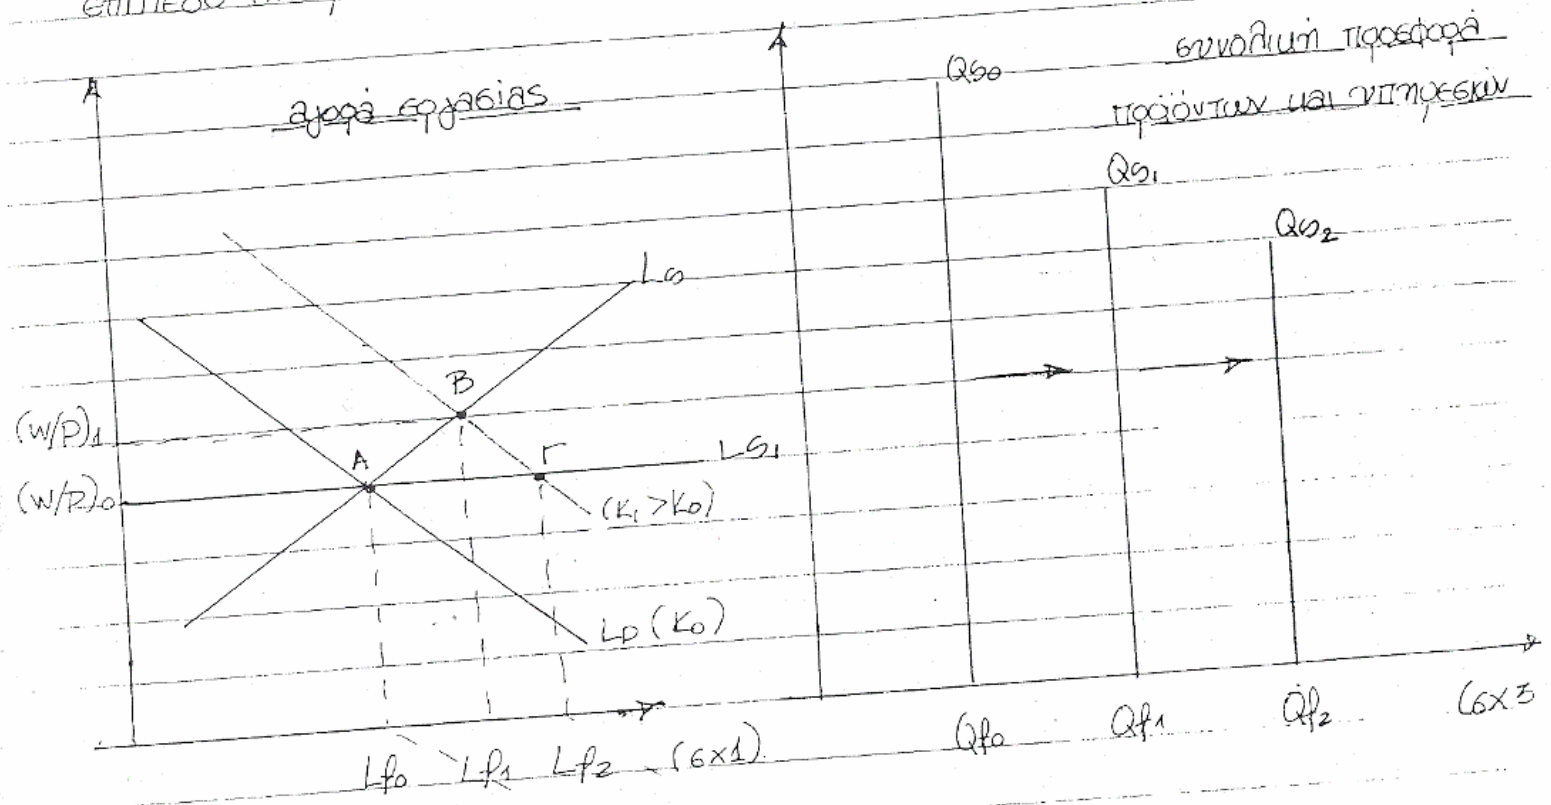 επίπεδο
αγορά εργασίας
συνολική προσφορά
προϊόντων και υπηρεσιών
Qs₀
Qs₁
Qs₂
Ls
B
(W/P)₁
A
Γ
LS₁
(W/P)₀
(K₁>K₀)
LD (K₀)
Lf₀ Lf₁ Lf₂ (σχ1)
Qf₀ Qf₁ Qf₂ (σχ3